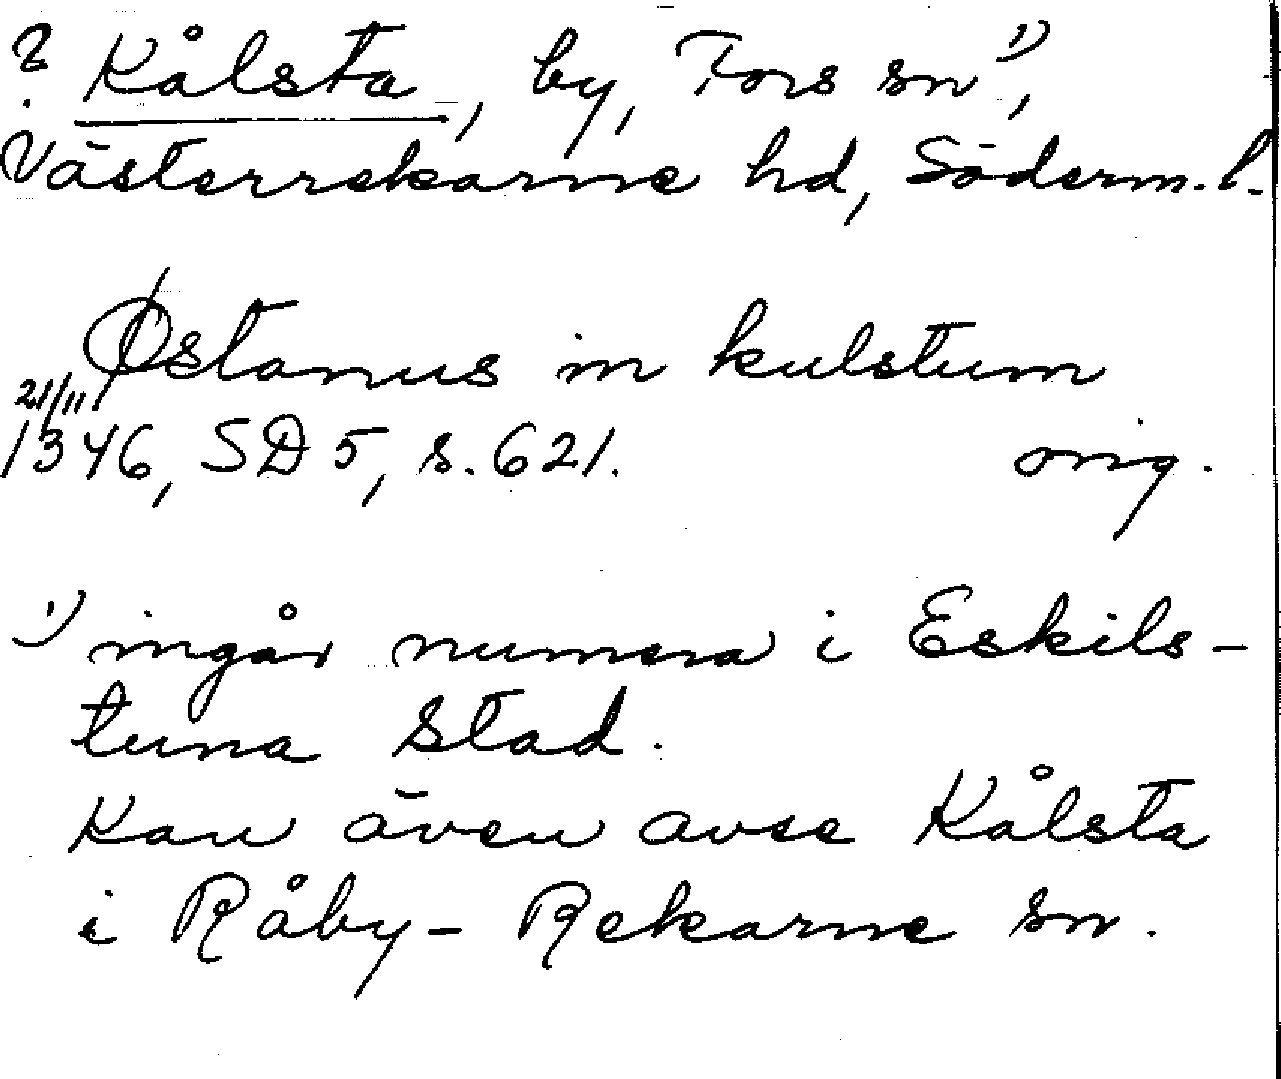 ? Kålsta, by, Fors sn¹⁾,
Västerrekarne hd, Söderm. l.
Østanus in kulstum
21/11
1346, SD 5, s. 621. orig.
¹⁾ ingår numera i Eskils-
tuna stad.
Kan även avse Kålsta
i Råby-Rekarne sn.